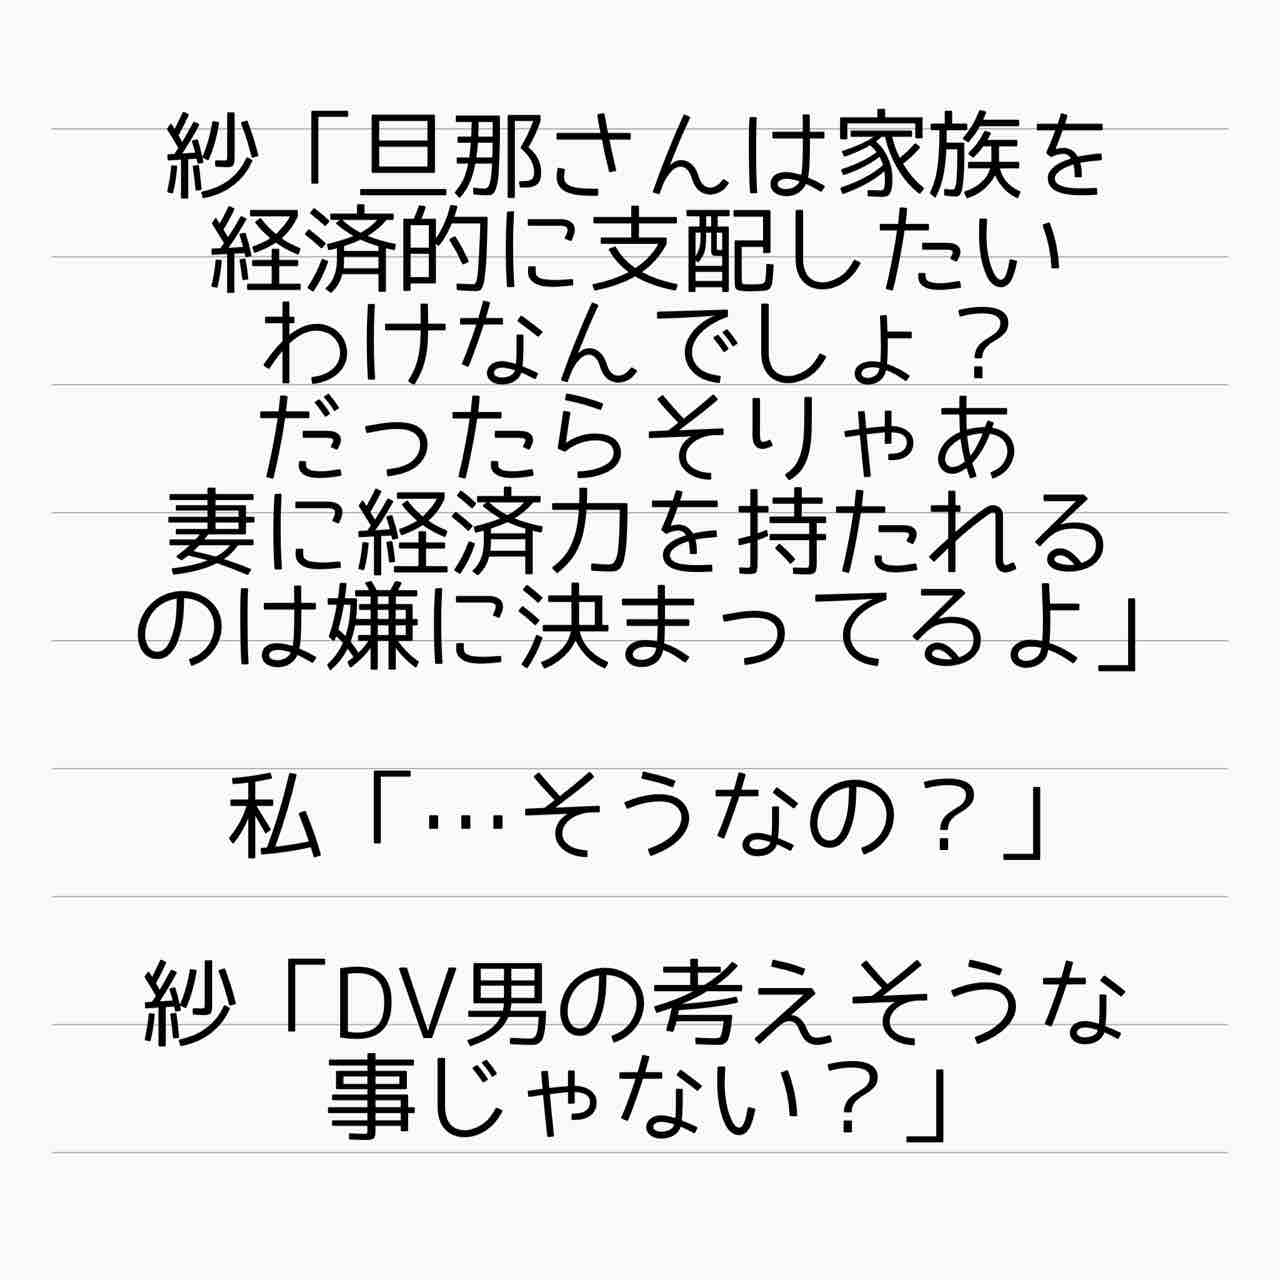 紗「旦那さんは家族を
経済的に支配したい
わけなんでしょ？
だったらそりゃあ
妻に経済力を持たれる
のは嫌に決まってるよ」
私「…そうなの？」
紗「DV男の考えそうな
事じゃない？」